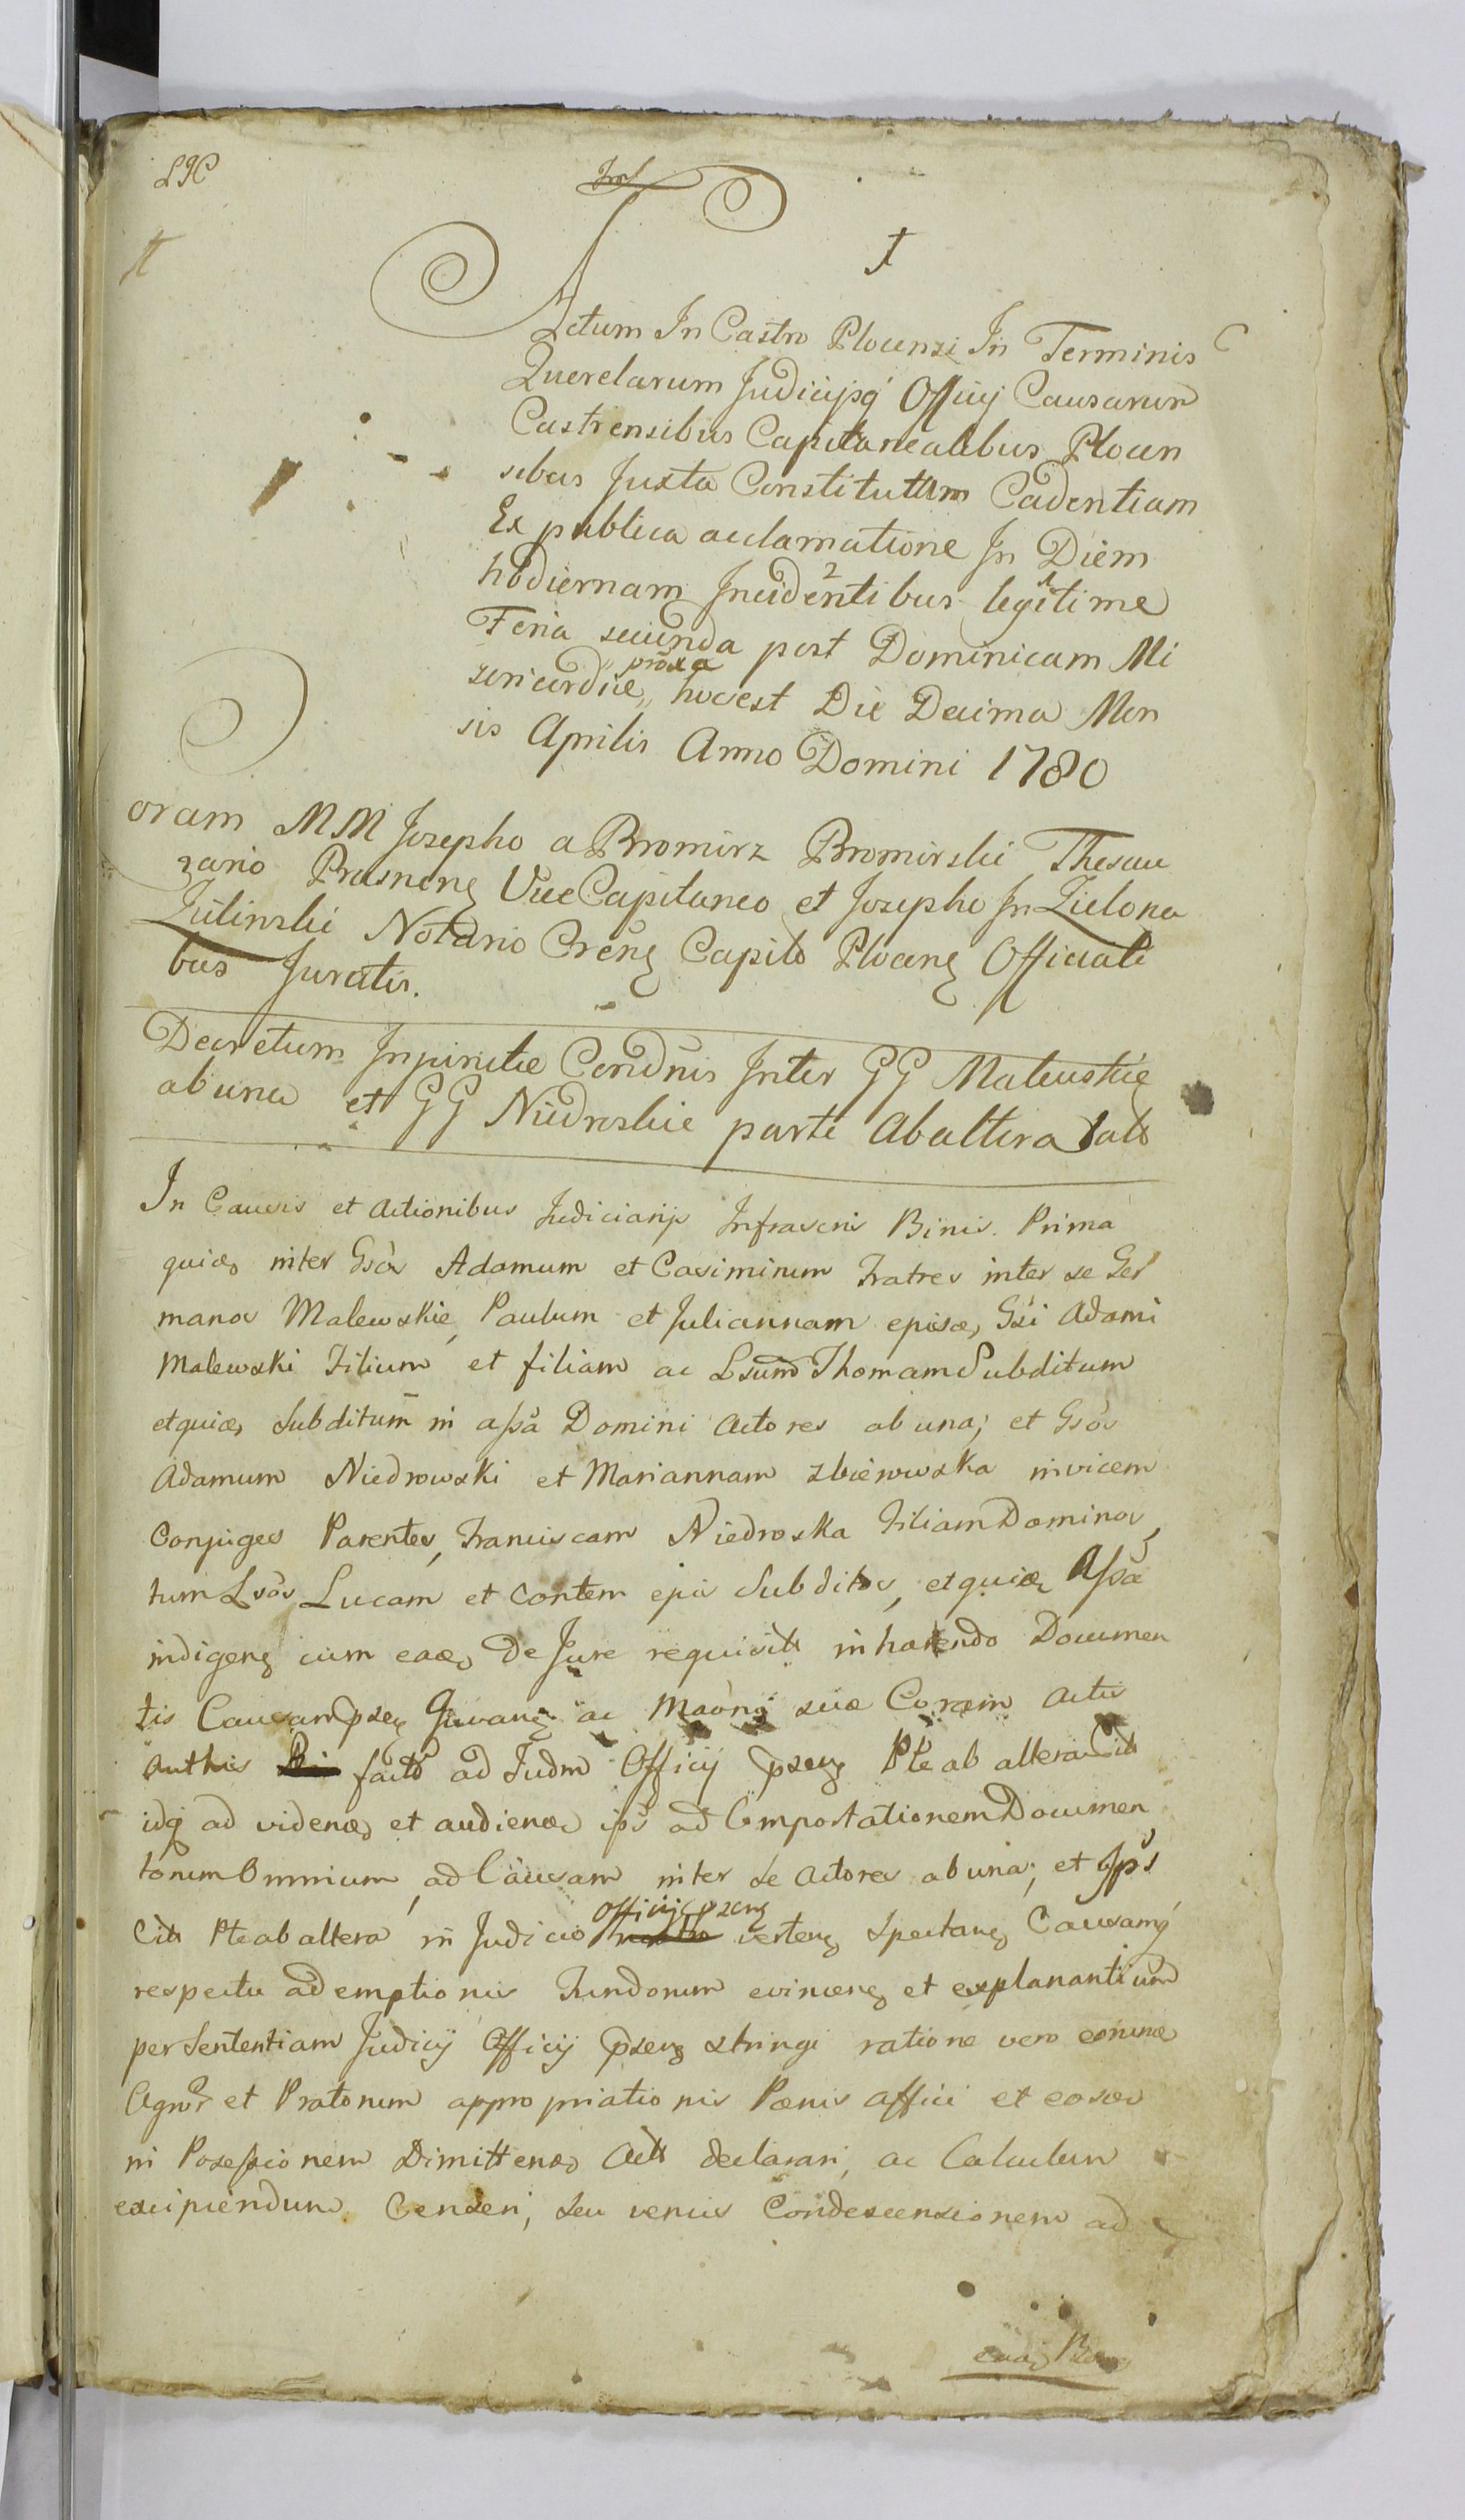 Actum In Castro Plocensi In Terminis
Querelarum Judicijsq Officij Causarum
Castrensibus Capitanealibus Plocen
sibus Juxta Constitutam Cadentiam
Ex publica acclamatione In Diem
hodiernam Incidentibus legitime
Feria secunda post Dominicam Mi
sericordiæ proxa hocest Die Decima Men
sis Aprilis Anno Domini 1780
Coram MM Josepho a Bromirz Bromirski Thesau
rario Prasnens Vice Capitaneo et Josepho In Zielona
Zielinski Notario Crens Capitli Plocens Officiali
bus Juratis.
Decretum Inpinctæ Condnis Inter GG Malewskie
abuna et GG Niedroskie parte Abaltera
In Causis et Actionibus Judiciarijs Infrascris Binis. Prima
quidem inter Gsos Adamum et Casimirum Fratres inter se Ger
manos Malewskie, Paulum et Juliannam episd, Gsi Adami
Malewski Filium et filiam ac Lsum Thomam Subditum
etquidem Subditum in assa Domini Actores abuna; et Gsos
Adamum Niedrowski et Mariannam Zbierowska invicem
Conjuges Parentes, Franciscam Niedroska Filiam Dominos,
tum Lsos Lucam et contem ejus Subditos, etquidem Assa
indigens cum eadem De Jure requisit inhærendo Documen
tis Causam psens Juvans ac Maong suæ Coram Actis
Anthis facto ad Judm Officij psens Pte ab altera Citt
idq ad vidend et audiend ips ad Comportationem Documen
torum Omnium, ad Causam inter se Actores abuna; et Ips
Citt Pteabaltera in Judicio Officij psens vertens Spectans Causamq
respectu ademptionis Fundorum evincens et explanantium
per Sententiam Judicij Officij psens stringi ratione vero eorund
Agror et Pratorum appropriationis Pænis affici et eosd
in Possessionem Dimittend Actt declarari, ac Calculum
excipiendum Censeri, seu verius Condescensionem ad